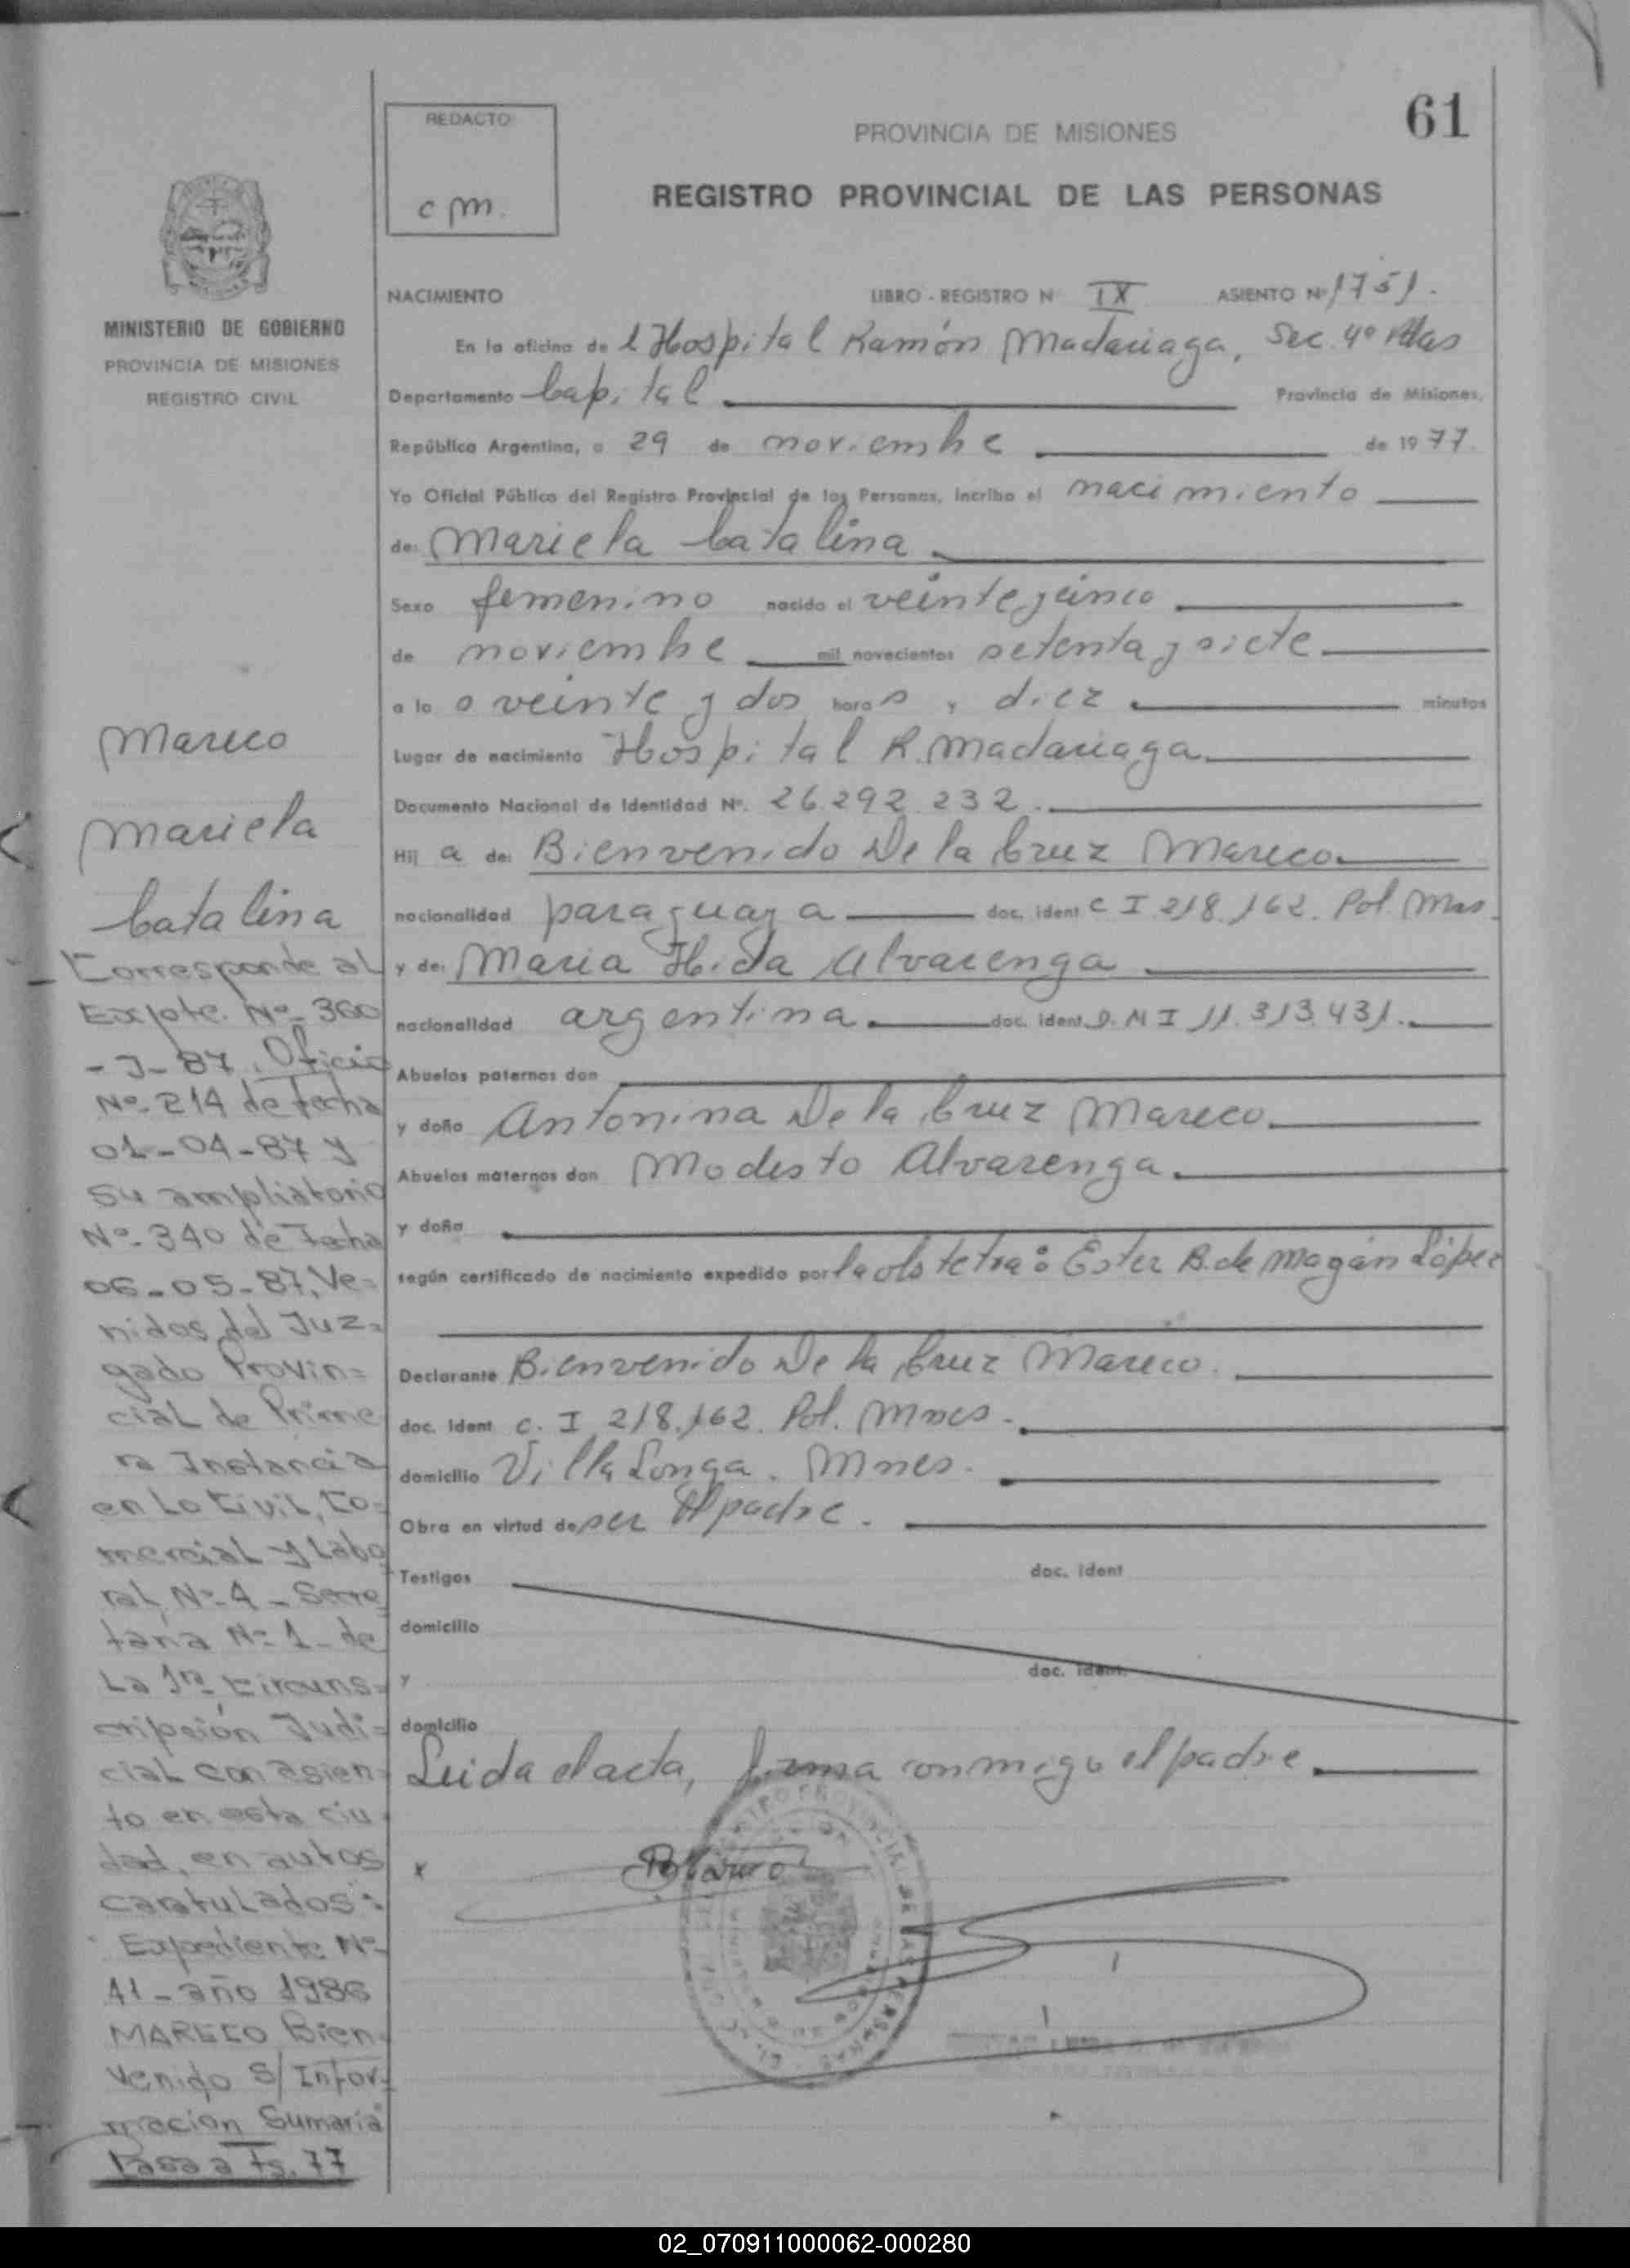 61
REDACTO
c m.
PROVINCIA DE MISIONES
REGISTRO PROVINCIAL DE LAS PERSONAS
MINISTERIO DE GOBIERNO
PROVINCIA DE MISIONES
REGISTRO CIVIL
NACIMIENTO LIBRO - REGISTRO N IX ASIENTO Nº 1751.
En la oficina de l Hospital Ramón Madariaga, Sec. 4º Pdas
Departamento Capital Provincia de Misiones,
República Argentina, a 29 de noviembre de 1977.
Yo Oficial Público del Registro Provincial de las Personas, incribo el nacimiento
de: Mariela Catalina
Sexo femenino nacido el veinte y cinco
de noviembre mil novecientos setenta y siete
a la s veinte y dos hora s y diez minutos
Lugar de nacimiento Hospital R. Madariaga
Documento Nacional de Identidad Nº. 26.292.232.
Hij a de: Bienvenido De la Cruz Mareco
nacionalidad paraguaya doc. ident C I 218.162. Pol. Mns.
y de: Maria Ilida Alvarenga
nacionalidad argentina doc. ident D. N I 11.313.431.
Abuelos paternos don
y doña Antonina De la Cruz Mareco
Abuelos maternos don Modesto Alvarenga
y doña
según certificado de nacimiento expedido por la obstetra: Ester B. de Magán López
Declarante Bienvenido De la Cruz Mareco.
doc. ident c. I 218.162. Pol. Mnes.
domicilio Villa Longa. Mnes.
Obra en virtud de ser el padre.
Testigos doc. ident
domicilio
y doc. ident.
domicilio
Leida el acta, firma conmigo el padre
x
Mareco
Mariela
Catalina
Corresponde al
Expte. Nº 360
- J - 87, Oficio
Nº 214 de fecha
01-04-87 y
su ampliatorio
Nº 340 de fecha
06-05-87, Ve=
nidos del Juz=
gado Provin=
cial de Prime
ra Instancia
en Lo Civil, Co=
mercial y Labo
ral, Nº 4 - Secre
taria Nº 1 - de
La 1ra Circuns=
cripción Judi=
cial con asien
to en esta ciu
dad, en autos
caratulados:
"Expediente Nº
41 - año 1986
MARECO Bien=
venido S/ Infor=
mación Sumaria"
Pasa a Fs. 77
02_070911000062-000280